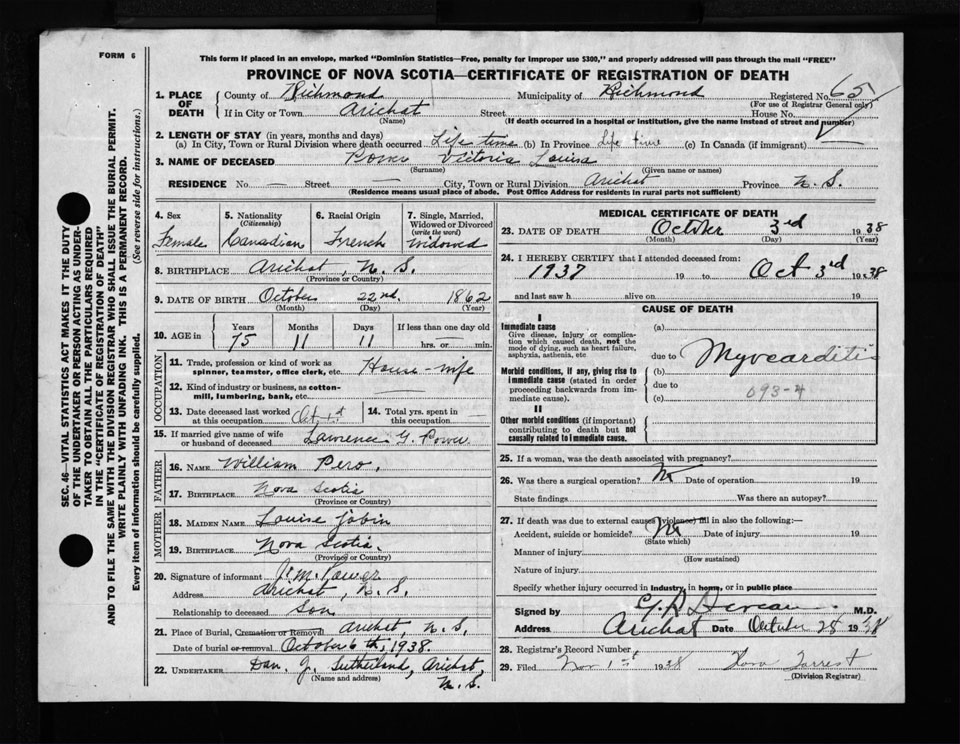 FORM 6
This form if placed in an envelope, marked "Dominion Statistics—Free, penalty for improper use $300," and properly addressed will pass through the mail "FREE"
PROVINCE OF NOVA SCOTIA—CERTIFICATE OF REGISTRATION OF DEATH
SEC. 46—VITAL STATISTICS ACT MAKES IT THE DUTY
OF THE UNDERTAKER OR PERSON ACTING AS UNDER-
TAKER TO OBTAIN ALL THE PARTICULARS REQUIRED
IN THE "CERTIFICATE OF REGISTRATION OF DEATH"
AND TO FILE THE SAME WITH THE DIVISION REGISTRAR WHO SHALL ISSUE THE BURIAL PERMIT.
WRITE PLAINLY WITH UNFADING INK. THIS IS A PERMANENT RECORD.
Every item of information should be carefully supplied. (See reverse side for instructions.)
1. PLACE OF DEATH
County of Richmond Municipality of Richmond Registered No. 65
(For use of Registrar General only)
If in City or Town Arichat Street House No.
(Name) (If death occurred in a hospital or institution, give the name instead of street and number)
2. LENGTH OF STAY (in years, months and days)
(a) In City, Town or Rural Division where death occurred Life time (b) In Province Life time (c) In Canada (if immigrant) —
3. NAME OF DECEASED Power Victoria Louisa
(Surname) (Given name or names)
RESIDENCE No. — Street — City, Town or Rural Division Arichat Province N. S.
(Residence means usual place of abode. Post Office Address for residents in rural parts not sufficient)
4. Sex Female
5. Nationality (Citizenship) Canadian
6. Racial Origin French
7. Single, Married, Widowed or Divorced (write the word) Widowed
8. BIRTHPLACE Arichat, N. S.
(Province or Country)
9. DATE OF BIRTH October 22nd. 1862
(Month) (Day) (Year)
10. AGE in Years 75 Months 11 Days 11 If less than one day old
hrs. or min.
OCCUPATION
11. Trade, profession or kind of work as spinner, teamster, office clerk, etc. House-wife
12. Kind of industry or business, as cotton-mill, lumbering, bank, etc. —
13. Date deceased last worked at this occupation Oct 1st
14. Total yrs. spent in this occupation —
15. If married give name of wife or husband of deceased Lawrence G. Power
FATHER
16. NAME William Pero.
17. BIRTHPLACE Nova Scotia
(Province or Country)
MOTHER
18. MAIDEN NAME Louise Jobin
19. BIRTHPLACE Nova Scotia.
(Province or Country)
20. Signature of informant J. M. Power
Address Arichat, N. S.
Relationship to deceased Son
21. Place of Burial, Cremation or Removal Arichat, N. S.
Date of burial or removal October 6th, 1938.
22. UNDERTAKER Dan. J. Sutherland, Arichat,
(Name and address) N. S.
MEDICAL CERTIFICATE OF DEATH
23. DATE OF DEATH October 3rd 1938
(Month) (Day) (Year)
24. I HEREBY CERTIFY that I attended deceased from:
1937 19 to Oct 3rd 1938
and last saw h alive on 19
CAUSE OF DEATH
I
Immediate cause (a)
Give disease, injury or complication which caused death, not the mode of dying, such as heart failure, asphyxia, asthenia, etc
due to Myocarditis
Morbid conditions, if any, giving rise to immediate cause (stated in order proceeding backwards from immediate cause). (b)
due to
(c) 093-4
II
Other morbid conditions (if important) contributing to death but not causally related to immediate cause.
25. If a woman, was the death associated with pregnancy?
26. Was there a surgical operation? No Date of operation 19
State findings Was there an autopsy?
27. If death was due to external causes (violence) fill in also the following:—
Accident, suicide or homicide? No Date of injury 19
(State which)
Manner of injury
(How sustained)
Nature of injury
Specify whether injury occurred in industry, in home, or in public place
Signed by M.D.
Address Arichat Date October 28 1938
28. Registrar's Record Number
29. Filed Nov 1st 1938
(Division Registrar)